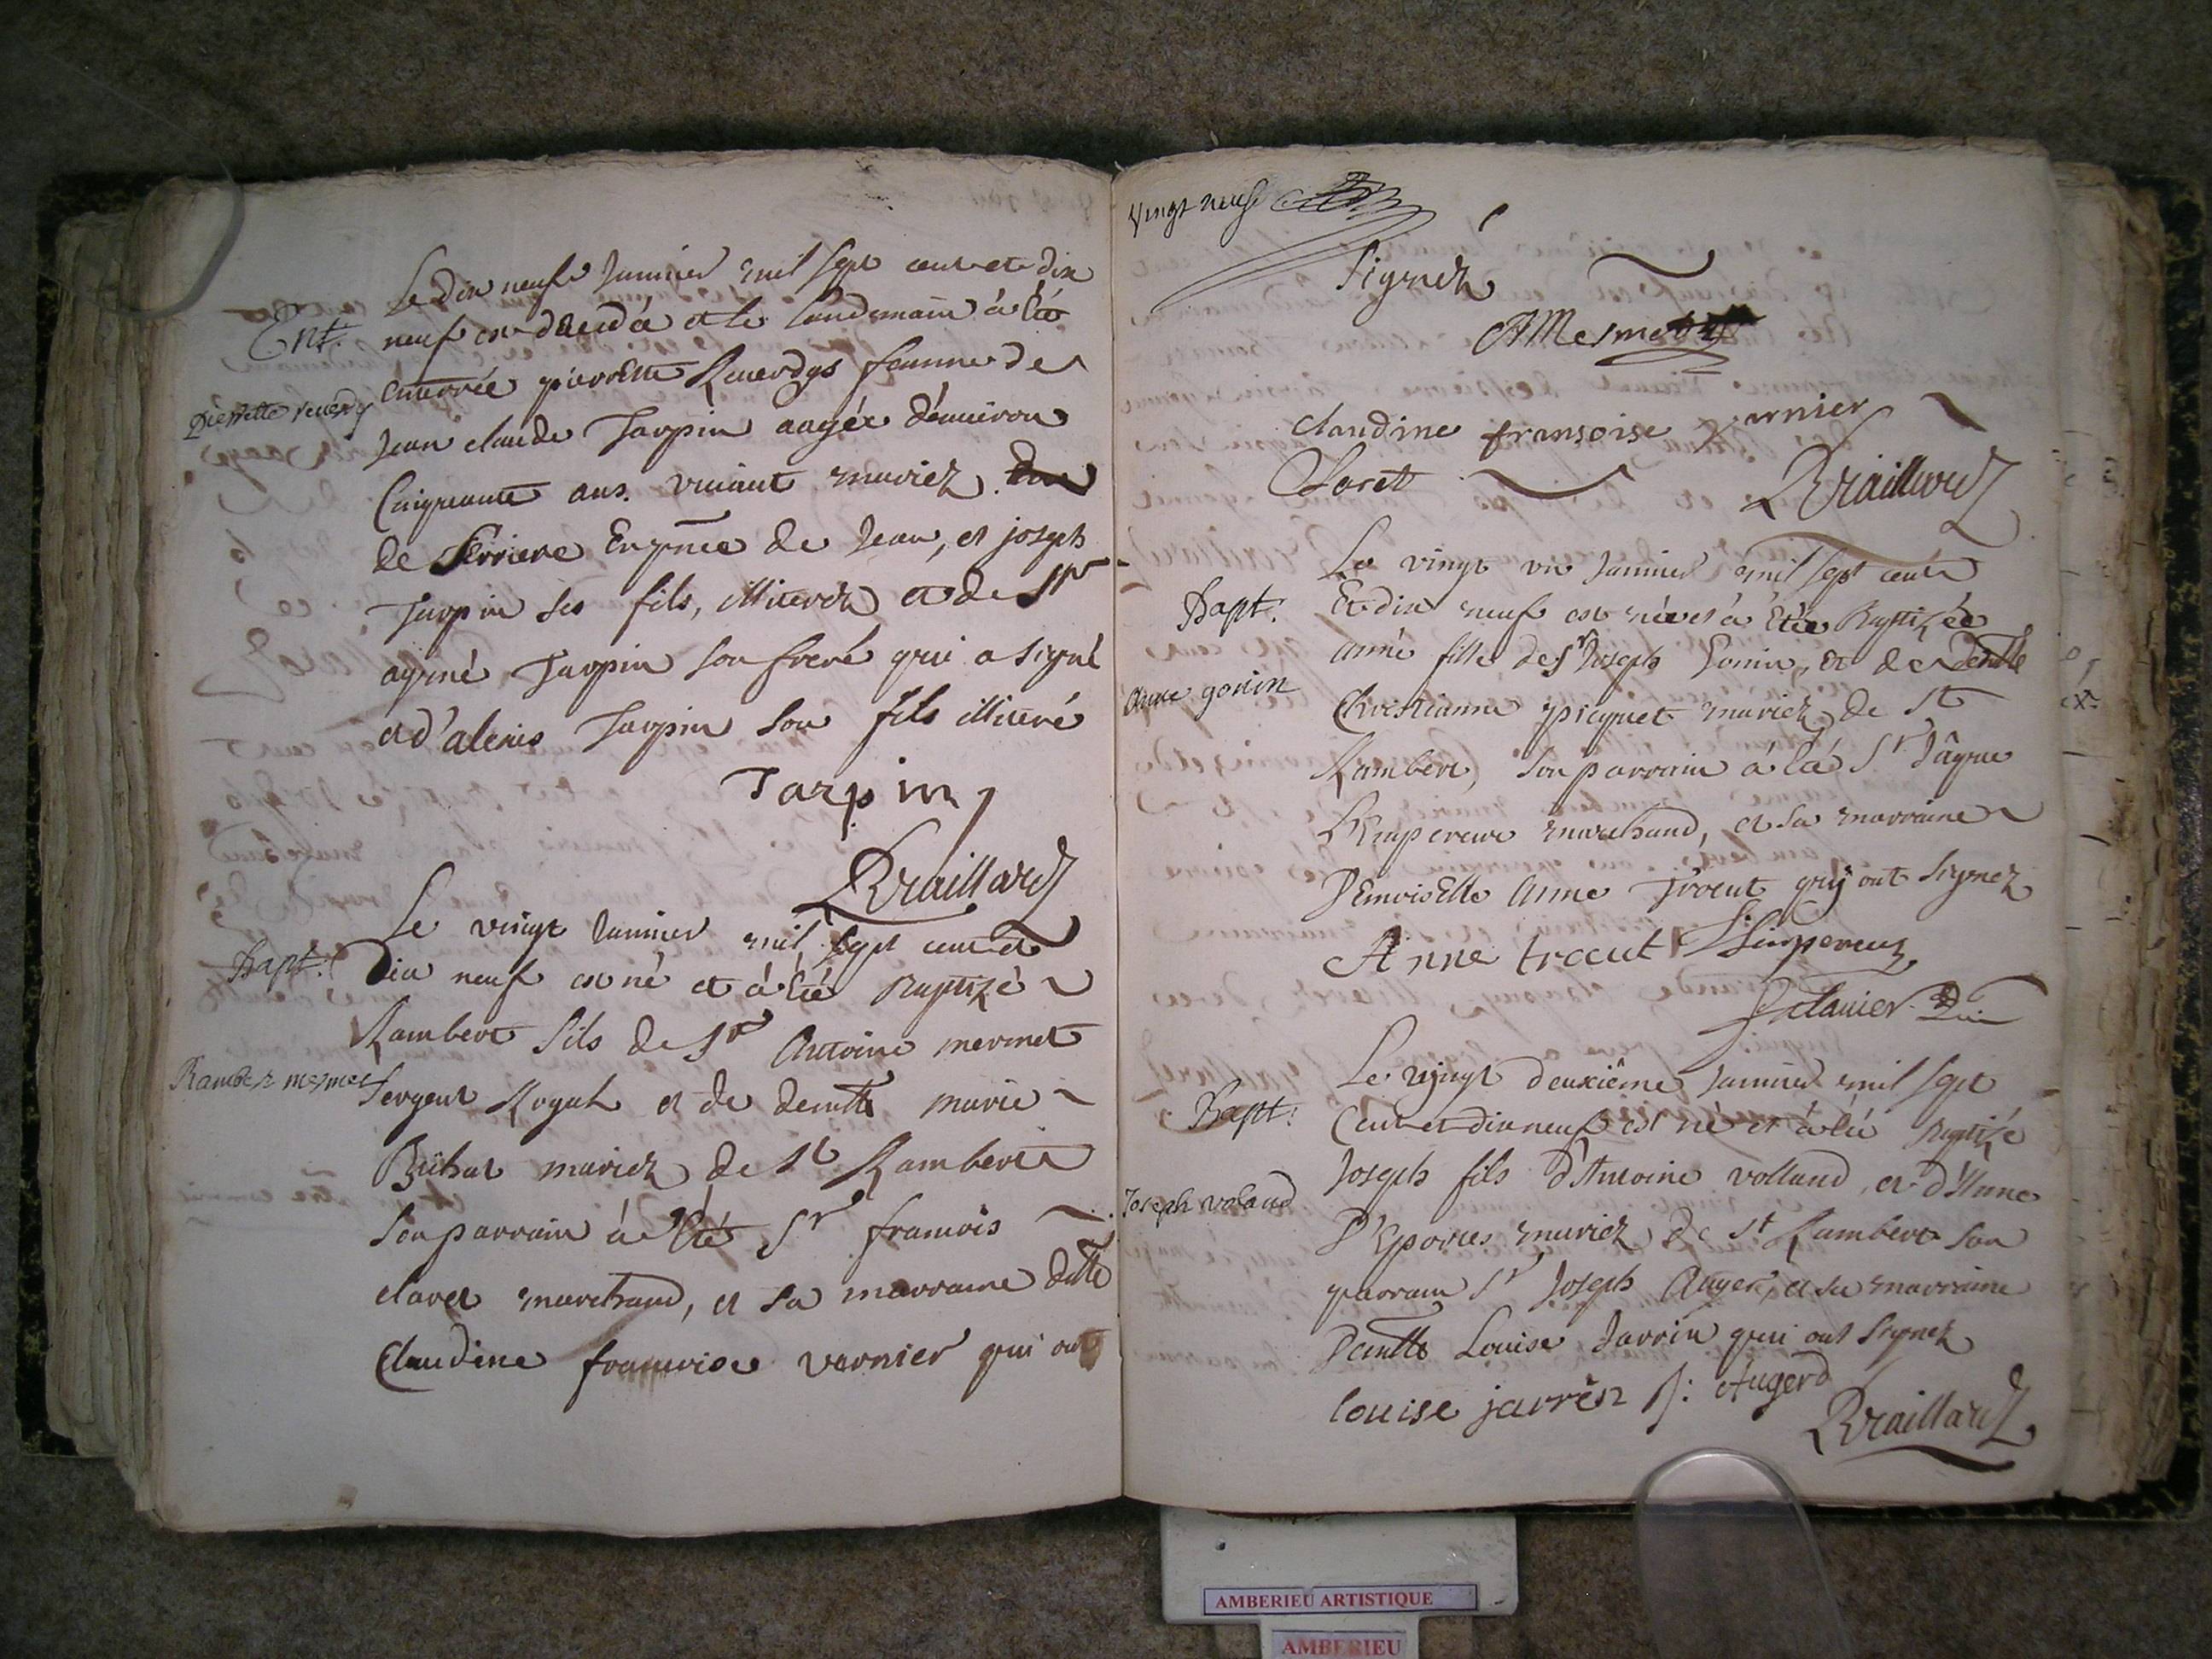 Le dix neufe Janvier mil sept cent et dix
Ent.
neuf est décédée et le landemain à été
enterrée pierrette Reuerdys femme de
Pierrette reuerdy
Jean claude Tarpin aagée d'énuiron
Cinquante ans. viuant mariez
de Serriere En pnce de Jean, et joseph
Tarpin ses fils, illiterez et de Sr
aymé Tarpin son freré qui a signé
et d'alexis Tarpin son fils illiteré
Tarpin
Braillard
Le vingt Janvier mil sept cent et
Bapt:
Dix neuf est né et à été Baptizé
Rambert fils de Sr Antoine mermet
Rambert mermet
Sergent Royal et de demlle marie
mariez de St Rambert
Son parrain à été Sr francois
claret marchand, et sa marraine dlle
Claudine francoise varnier qui ont
Vingt neuf
signéz
AMesmet
claudine fransoise varnier
Claret
Braillard
Le vingt un Janvier mil sept cent
Bapt:
Et dix neuf est née et à Etée Baptizée
anne fille de Sr Joseph Gonin, et de demlle
anne gonin
Christianne picquet mariez de St
Rambert, son parrain à été Sr Jâque
L'Empereur marchand, et sa marraine
DEmoisElle anne Trocut quy ont signez
Anne trocut Lempereur
Le vingt deuxiême Janvier mil sept
Bapt:
Cent et dix neuf est né et à été Baptizé
Joseph fils d'Antoine volland, et d'Anne
Joseph voland
D'Eporces mariez de St Rambert son
parrain Sr Joseph Auger, et sa marraine
Demlle Louise Jarrin qui ont signez
louise jarrin J: Augerd
Braillard
AMBERIEU ARTISTIQUE
AMBERIEU